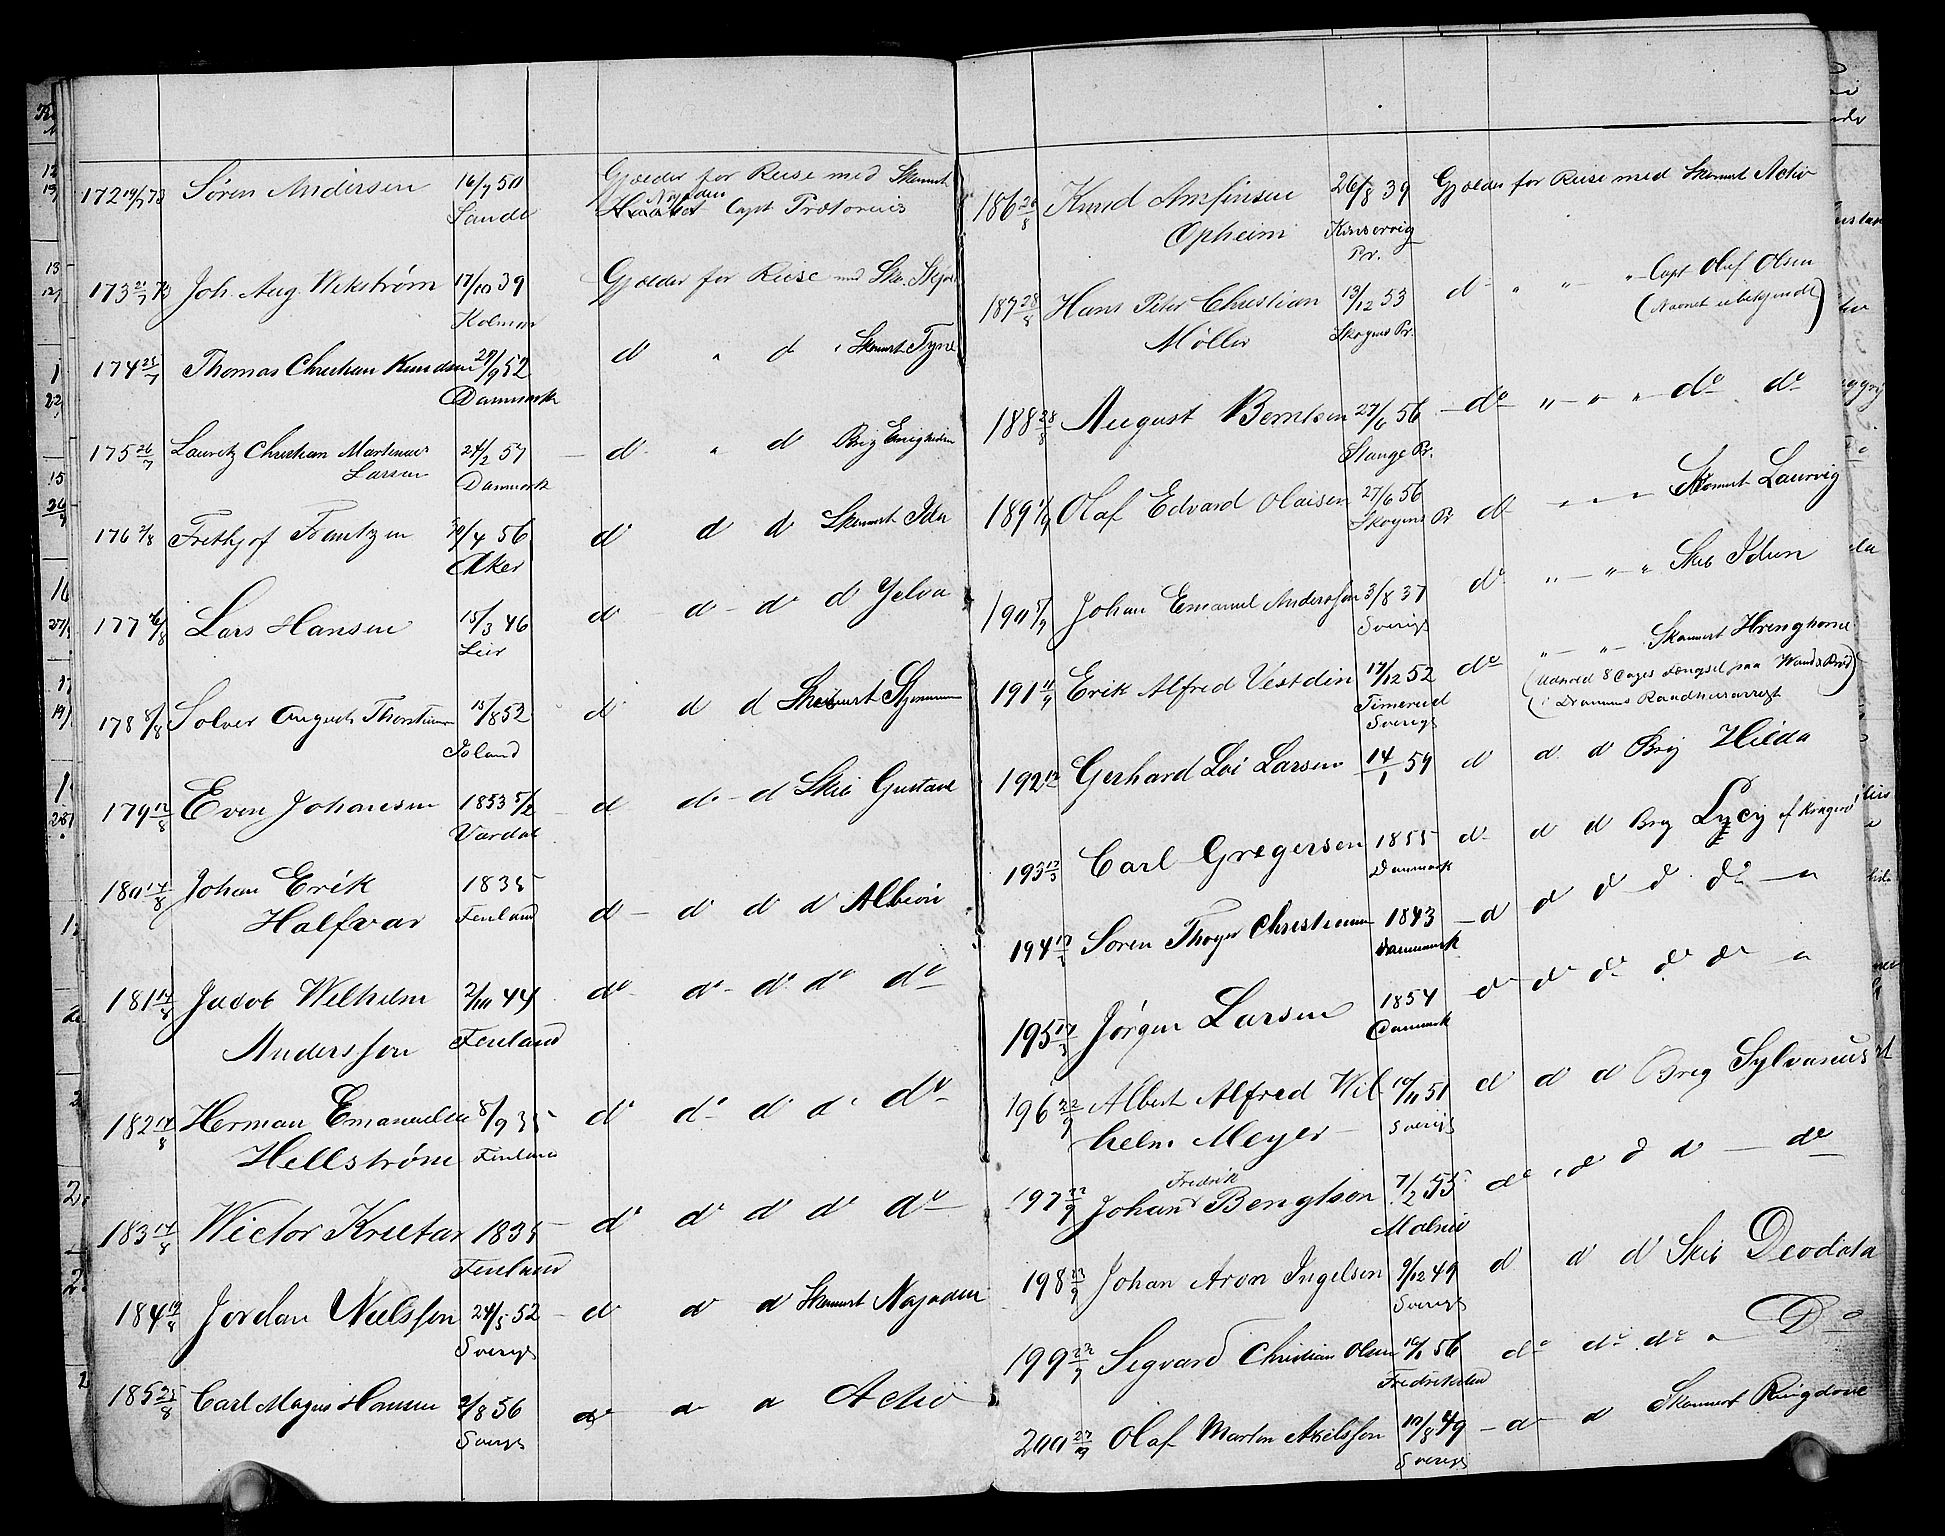 172 19/7 73 Søren Andersen 16/7 50 Gjælder for Reise med Skonnert
Sande Najaden Capt Prætorius
173 21/7 73 Joh. Aug. Wikstrøm 17/10 39 Gjælder for Reise med Skb.
Kalmar
174 25/7 Thomas Christian Knudsen 29/9 52 d " d " Skonnert Tyne
Danmark
175 26/7 Lauritz Christian Martinus 24/2 57 d " d Brig Enigheden
Larsen Danmark
176 2/8 Frethjof Frantzen 30/4 56 d d d Skonnert Ida
Aker
177 6/8 Lars Hansen 15/3 46 d d d d Yelva
Leir
178 8/8 Solver August Thorstensen 15/8 52 d d d Skonnert
Island
179 12/8 Even Johansen 1853 5/2 d d d Skib Gustava
Vardal
180 14/8 Johan Erik 1835 d d d d Albion
Halfvar Finland
181 14/8 Jacob Wilhelm 2/10 44 do d d do do
Andersson Finland
182 14/8 Herman Emanuel 8/9 35 d d d d do
Hellstrøm Finland
183 14/8 Wictor Krœtar 1835 d d d d do
Finland
184 19/8 Jordan Nielsson 24/5 52 d d d Skonnert Najaden
Sverige
185 25/8 Carl Magnus Hansen 9/8 56 d d d Activ
Sverige
186 26/8 Knud Arnfinsen 26/8 39 Gjælder for Reise med Skonnert Activ
Opheim Kinservig
Pr.
187 28/8 Hans Peter Christian 13/12 53 d " " " Capt Oluf Olsen
Møller Skogns Pr. (Navnet ubekjendt)
188 28/8 August Berntsen 27/6 56 do " " " do do
Stange Pr.
189 1/9 Olaf Edvard Olaisen 27/6 56 d " " " Skonnert Laurvig
Skogns Pr
190 5/9 Johan Emanuel Andersson 3/8 37 do " " " Skib Idun
Sverige
191 11/9 Erik Alfred Vestdin 17/12 52 do " " Skonnert Hringhorne
Timerud (Udstod 8 Dages Fængsel paa Vand & Brød)
Sverige (i Drammens Raadhusarrest
192 12/ Gerhard Loi Larsen 14/1 59 d d d Brig Hilda
193 13/ Carl Gregersen 1855 d d d Brig Lycy af Kragerø
Danmark
194 13/ Søren Thøger Christensen 1843 d d d d do "
Danmark
195 13/ Jørgen Larsen 1854 d d d d do "
Danmark
196 22/9 Albert Alfred Wil 10/11 51 d d d Brig Sylvanus
helm Meyer Sverige
Fredrik
197 22/9 Johan Bengtson 7/2 55 do d d d do
Malmø
198 23/9 Johan Aron Ingelsen 9/12 49 d d d Skib Deodata
Sverige
199 23/9 Segvard Christian Olsen 56 do do do " Do
Fredrikshald
200 27/9 Olaf Martin Axelsson 10/8 49 d d Skonnert Ringdove
Sverige